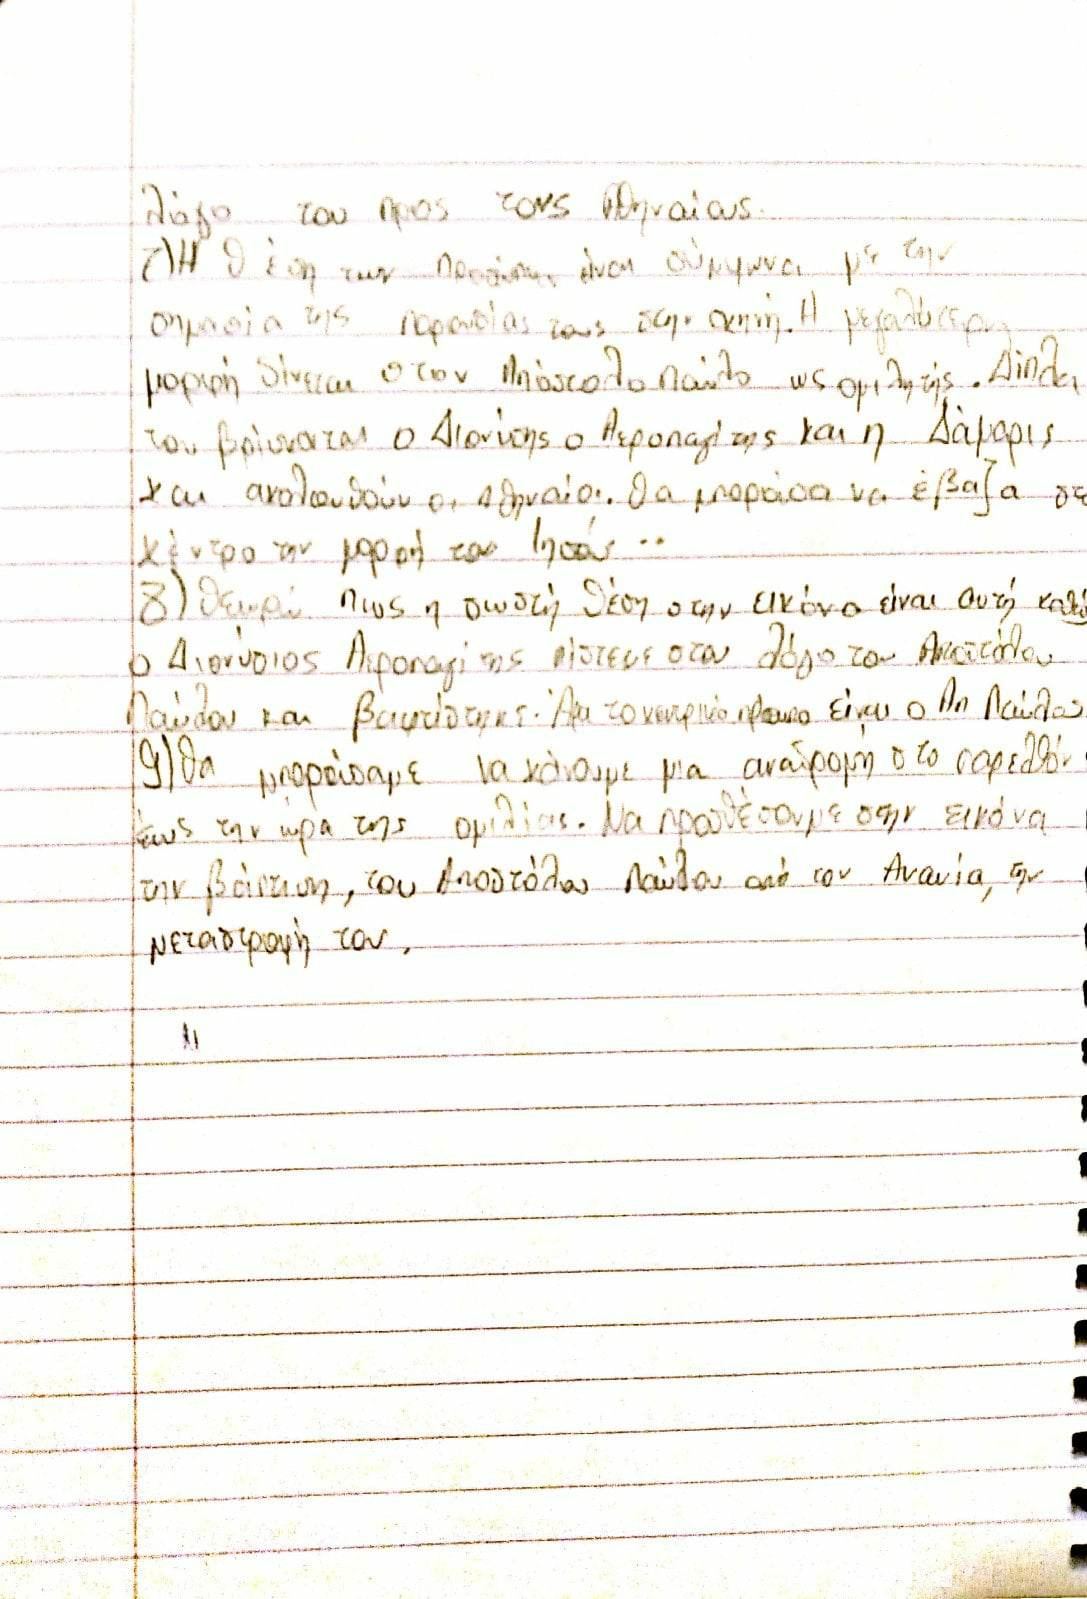 λόγο του προς τους Αθηναίους.
7) Η θέση των προσώπων είναι σύμφωνα με την
σημασία της παρουσίας τους στην σκηνή. Η μεγαλύτερη
μορφή δίνεται στον Απόστολο Παύλο ως ομιλητής. Δίπλα
του βρίσκονται ο Διονύσης ο Αεροπαγίτης και η Δάμαρις
και ακολουθούν οι Αθηναίοι. Θα μπορούσα να έβαζα σε
κέντρο την μορφή του Ιησού..
8) Θεωρώ πως η σωστή θέση στην εικόνα είναι αυτή καθώς
ο Διονύσιος Αεροπαγίτης πίστεψε στον λόγο του Αποστόλου
Παύλου και βαπτίστηκε. το κεντρικό πρόσωπο είναι ο Απ Παύλος
9) Θα μπορούσαμε να κάνουμε μια αναδρομή στο παρελθόν
έως την ώρα της ομιλίας. Να προσθέσουμε στην εικόνα
την βάπτιση, του Αποστόλου Παύλου από τον Ανανία, την
μεταστροφή του.